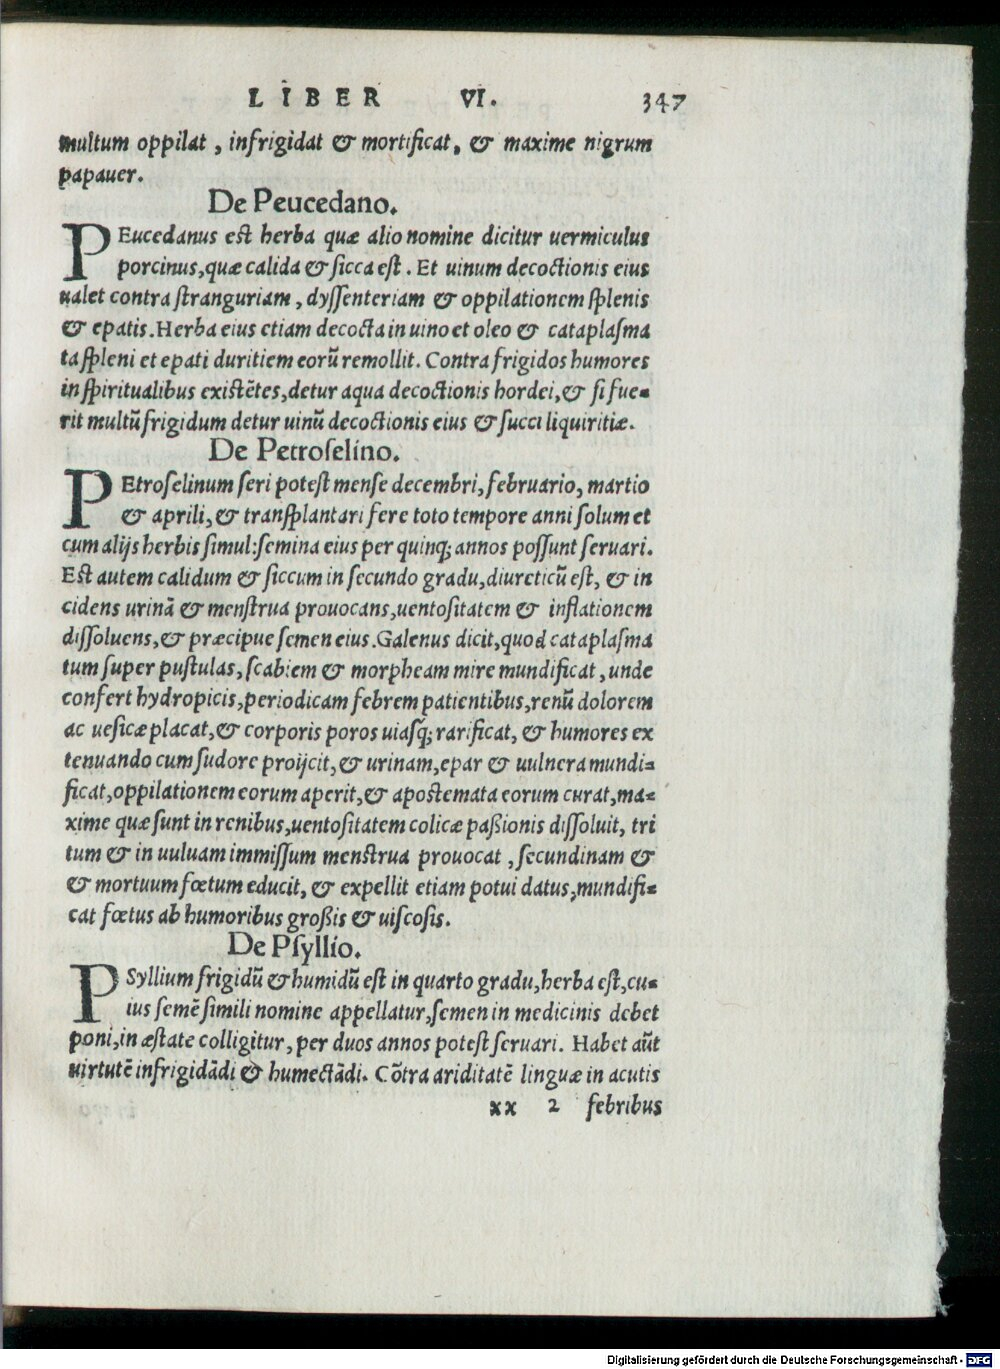 LIBER VI. 347
multum oppilat, infrigidat & mortificat, & maxime nigrum
papauer.
De Peucedano.
PEucedanus est herba quæ alio nomine dicitur uermiculus
porcinus, quæ calida & sicca est. Et uinum decoctionis eius
ualet contra stranguriam, dyssenteriam & oppilationem splenis
& epatis. Herba eius etiam decocta in uino et oleo & cataplasma
ta spleni et epati duritiem eorũ remollit. Contra frigidos humores
in spiritualibus existẽtes, detur aqua decoctionis hordei, & si fue-
rit multũ frigidum detur uinũ decoctionis eius & succi liquiritiæ.
De Petroselino.
PEtroselinum seri potest mense decembri, februario, martio
& aprili, & transplantari fere toto tempore anni solum et
cum alijs herbis simul: semina eius per quinq; annos possunt seruari.
Est autem calidum & siccum in secundo gradu, diureticũ est, & in
cidens urinã & menstrua prouocans, uentositatem & inflationem
dissoluens, & præcipue semen eius. Galenus dicit, quod cataplasma
tum super pustulas, scabiem & morpheam mire mundificat, unde
confert hydropicis, periodicam febrem patientibus, renũ dolorem
ac uesicæ placat, & corporis poros uiasq; rarificat, & humores ex
tenuando cum sudore proijcit, & urinam, epar & uulnera mundi-
ficat, oppilationem eorum aperit, & apostemata eorum curat, ma-
xime quæ sunt in renibus, uentositatem colicæ paßionis dissoluit, tri
tum & in uuluam immissum menstrua prouocat, secundinam &
& mortuum fœtum educit, & expellit etiam potui datus, mundifi-
cat fœtus ab humoribus großis & uiscosis.
De Psyllio.
PSyllium frigidũ & humidũ est in quarto gradu, herba est, cu-
ius semẽ simili nomine appellatur, semen in medicinis debet
poni, in æstate colligitur, per duos annos potest seruari. Habet aũt
uirtutẽ infrigidãdi & humectãdi. Cõtra ariditatẽ linguæ in acutis
xx 2 febribus
Digitalisierung gefördert durch die Deutsche Forschungsgemeinschaft - DFG